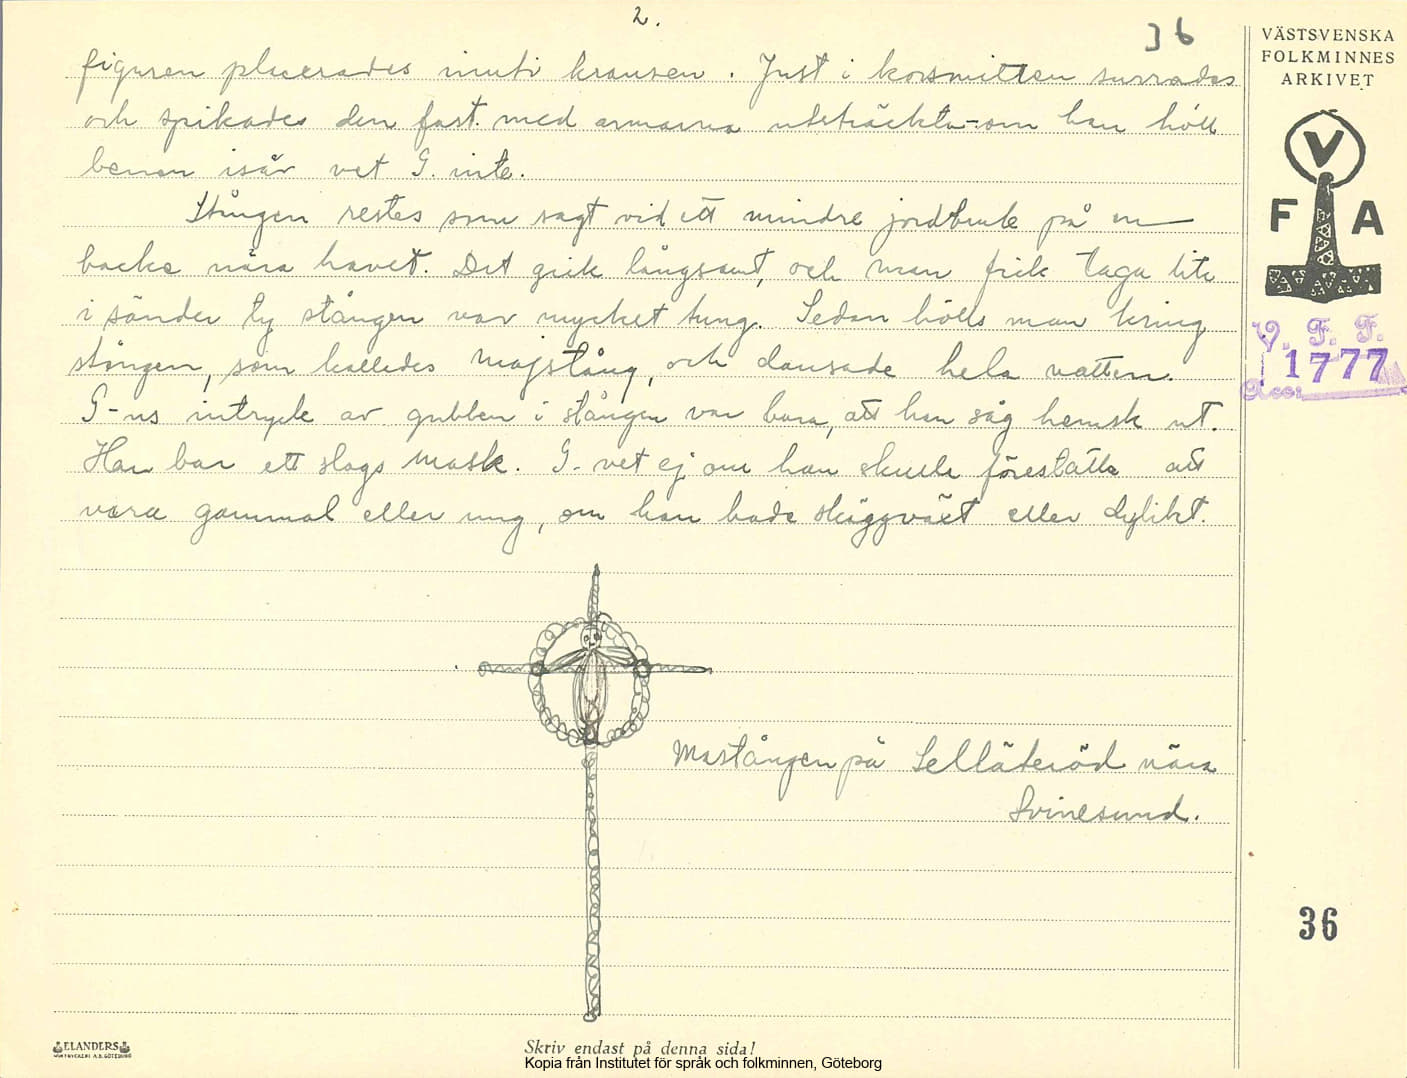 2.
36
figuren placerades inuti kransen. Just i korsmitten surrades
och spikades den fast med armarna utsträckta - om han höll
benen isär vet G. inte.
Stången restes som sagt vid ett mindre jordbruk på en
backe nära havet. Det gick långsamt, och man fick taga lite
i sänder ty stången var mycket tung. Sedan hölls man kring
stången, som kallades majstång, och dansade hela natten.
G-ns intryck av gubben i stången var bara, att han såg hemsk ut.
Han bar ett slags mask. G. vet ej om han skulle föreställa att
vara gammal eller ung, om han hade skäggväxt eller dylikt.
Mastången på Selläteröd nära
Svinesund.
VÄSTSVENSKA
FOLKMINNES
ARKIVET
V
F A
V. F. F.
1777
Acc:
36
ELANDERS
Skriv endast på denna sida!
Kopia från Institutet för språk och folkminnen, Göteborg